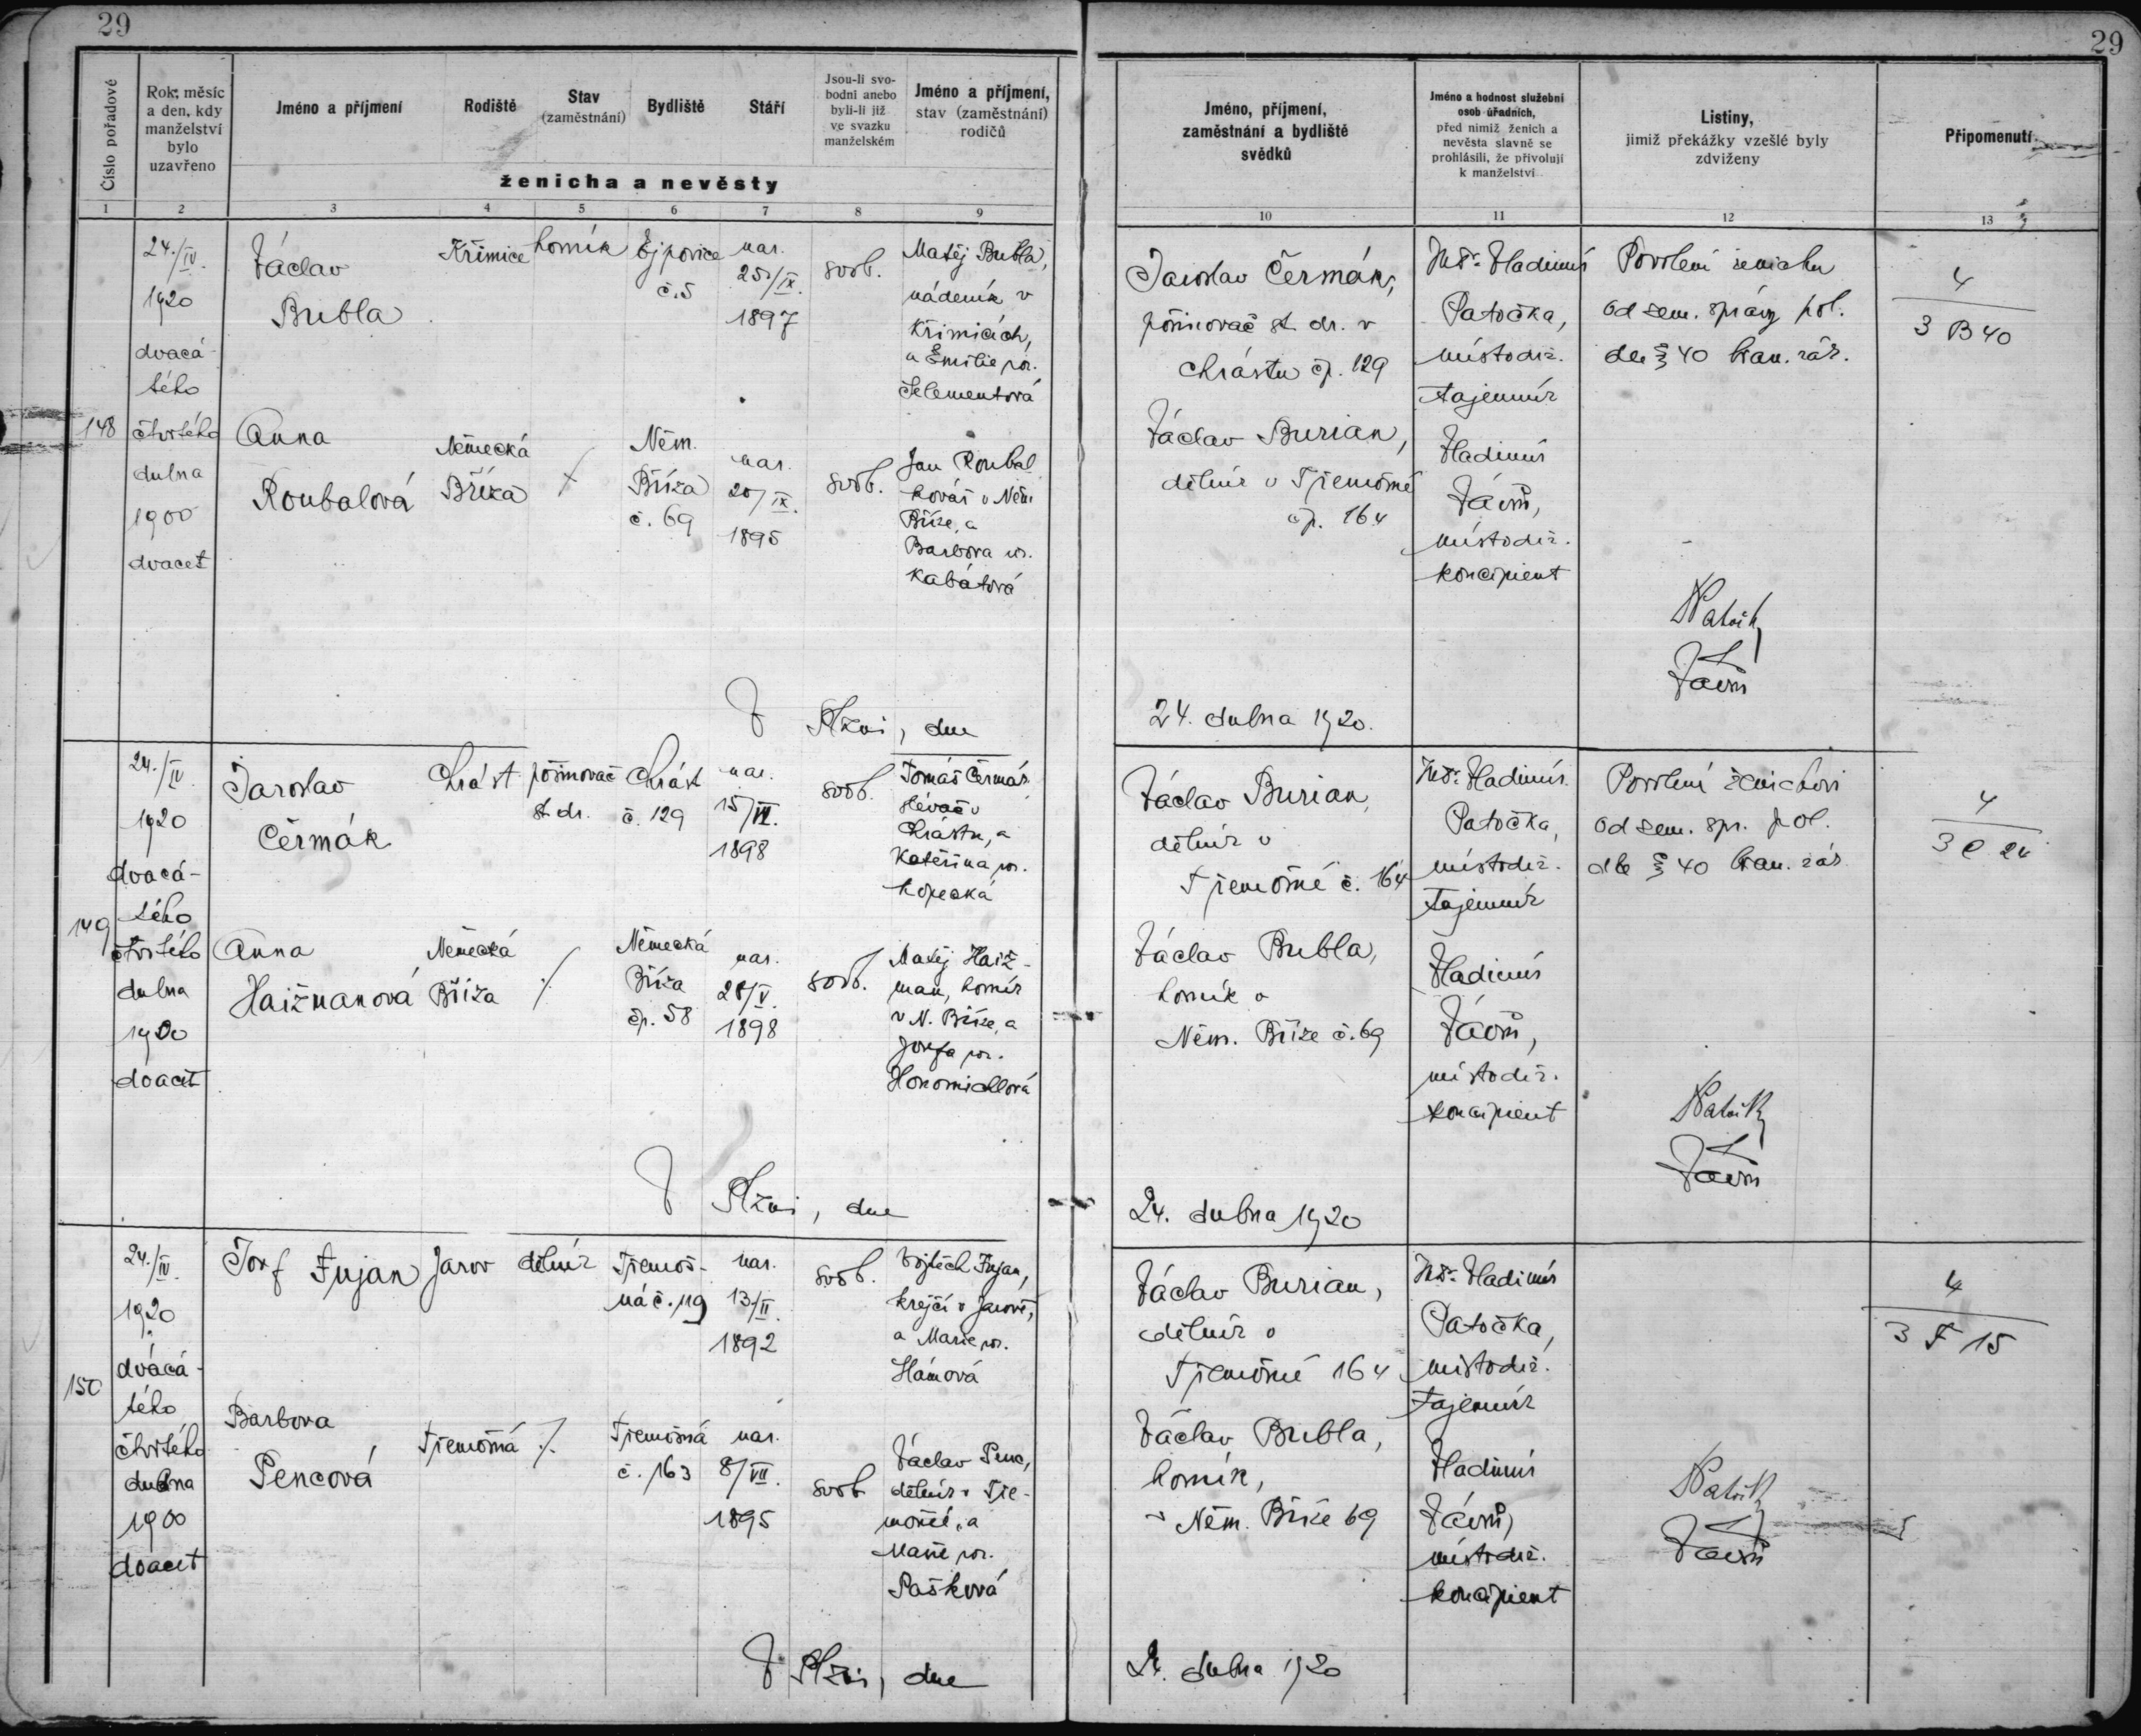 29
29
Číslo pořadové
Rok, měsíc
a den, kdy
manželství
bylo
uzavřeno
Jméno a příjmení
Rodiště
Stav
(zaměstnání)
Bydliště
Stáří
Jsou-li svo-
bodni anebo
byli-li již
ve svazku
manželském
Jméno a příjmení,
stav (zaměstnání)
rodičů
ženicha a nevěsty
Jméno, příjmení,
zaměstnání a bydliště
svědků
Jméno a hodnost služební
osob úřadních,
před nimiž ženich a
nevěsta slavně se
prohlásili, že přivolují
k manželství
Listiny,
jimiž překážky vzešlé byly
zdviženy
Připomenutí
1
2
3
4
5
6
7
8
9
10
11
12
13
148
24./IV.
1920
dvacá-
tého
čtvrtého
dubna
1900
dvacet
Václav
Bubla
Křimice
horník
Ejpovice
č. 5
nar.
25/IX.
1897
svob.
Matěj Bubla,
nádeník v
Křimicích,
a Emilie roz.
Anna
Roubalová
Německá
Bříza
Něm.
Bříza
č. 69
nar.
20/IX.
1895
svob.
Jan Roubal
kovář v Něm.
Bříze, a
Barbora roz.
Kabátová
Jaroslav Čermák,
st. dr. v
Chrástu čp. 129
Václav Burian,
dělník v Třemošné
čp. 164
Vladimír
Patočka,
místodrž.
tajemník
Vladimír
místodrž.
koncipient
Povolení ženichu
od zem. správy pol.
dle § 40 bran. zák.
4
3 B 40
V Plzni, dne
24. dubna 1920.
149
24./IV.
1920
dvacá-
tého
čtvrtého
dubna
1900
dvacet
Jaroslav
Čermák
Chrást
st. dr.
Chrást
č. 129
nar.
15/VI.
1898
svob.
Tomáš Čermák
slévač v
Chrástu, a
Kateřina roz.
Kopecká
Anna
Haižmanová
Německá
Bříza
Německá
Bříza
čp. 58
nar.
28/V.
1898
svob.
Matěj Haiž-
man, horník
v N. Bříze, a
Josefa roz.
Honomichlová
Václav Burian,
dělník v
Třemošné č. 164
Václav Bubla,
horník v
Něm. Bříze č. 69
Vladimír
Patočka,
místodrž.
tajemník
Vladimír
místodrž.
koncipient
Povolení ženichovi
od zem. spr. pol.
dle § 40 bran. zák
4
3 C 24
V Plzni, dne
24. dubna 1920
150
24./IV.
1920
dvacá-
tého
čtvrtého
dubna
1900
dvacet
Josef Fujan
Jarov
dělník
Třemoš-
ná č. 119
nar.
13/II.
1892
svob.
Vojtěch Fujan,
krejčí v Jarově,
a Marie roz.
Hánová
Barbora
Pencová
Třemošná
Třemošná
č. 163
nar.
8/VII.
1895
svob
Václav Penc,
dělník v Tře-
mošné, a
Marie roz.
Pašková
Václav Burian,
dělník v
Třemošné 164
Václav Bubla,
horník,
v Něm. Bříze 69
Vladimír
Patočka,
místodrž.
tajemník
Vladimír
místodrž.
koncipient
4
3 F 15
V Plzni, dne
24. dubna 1920